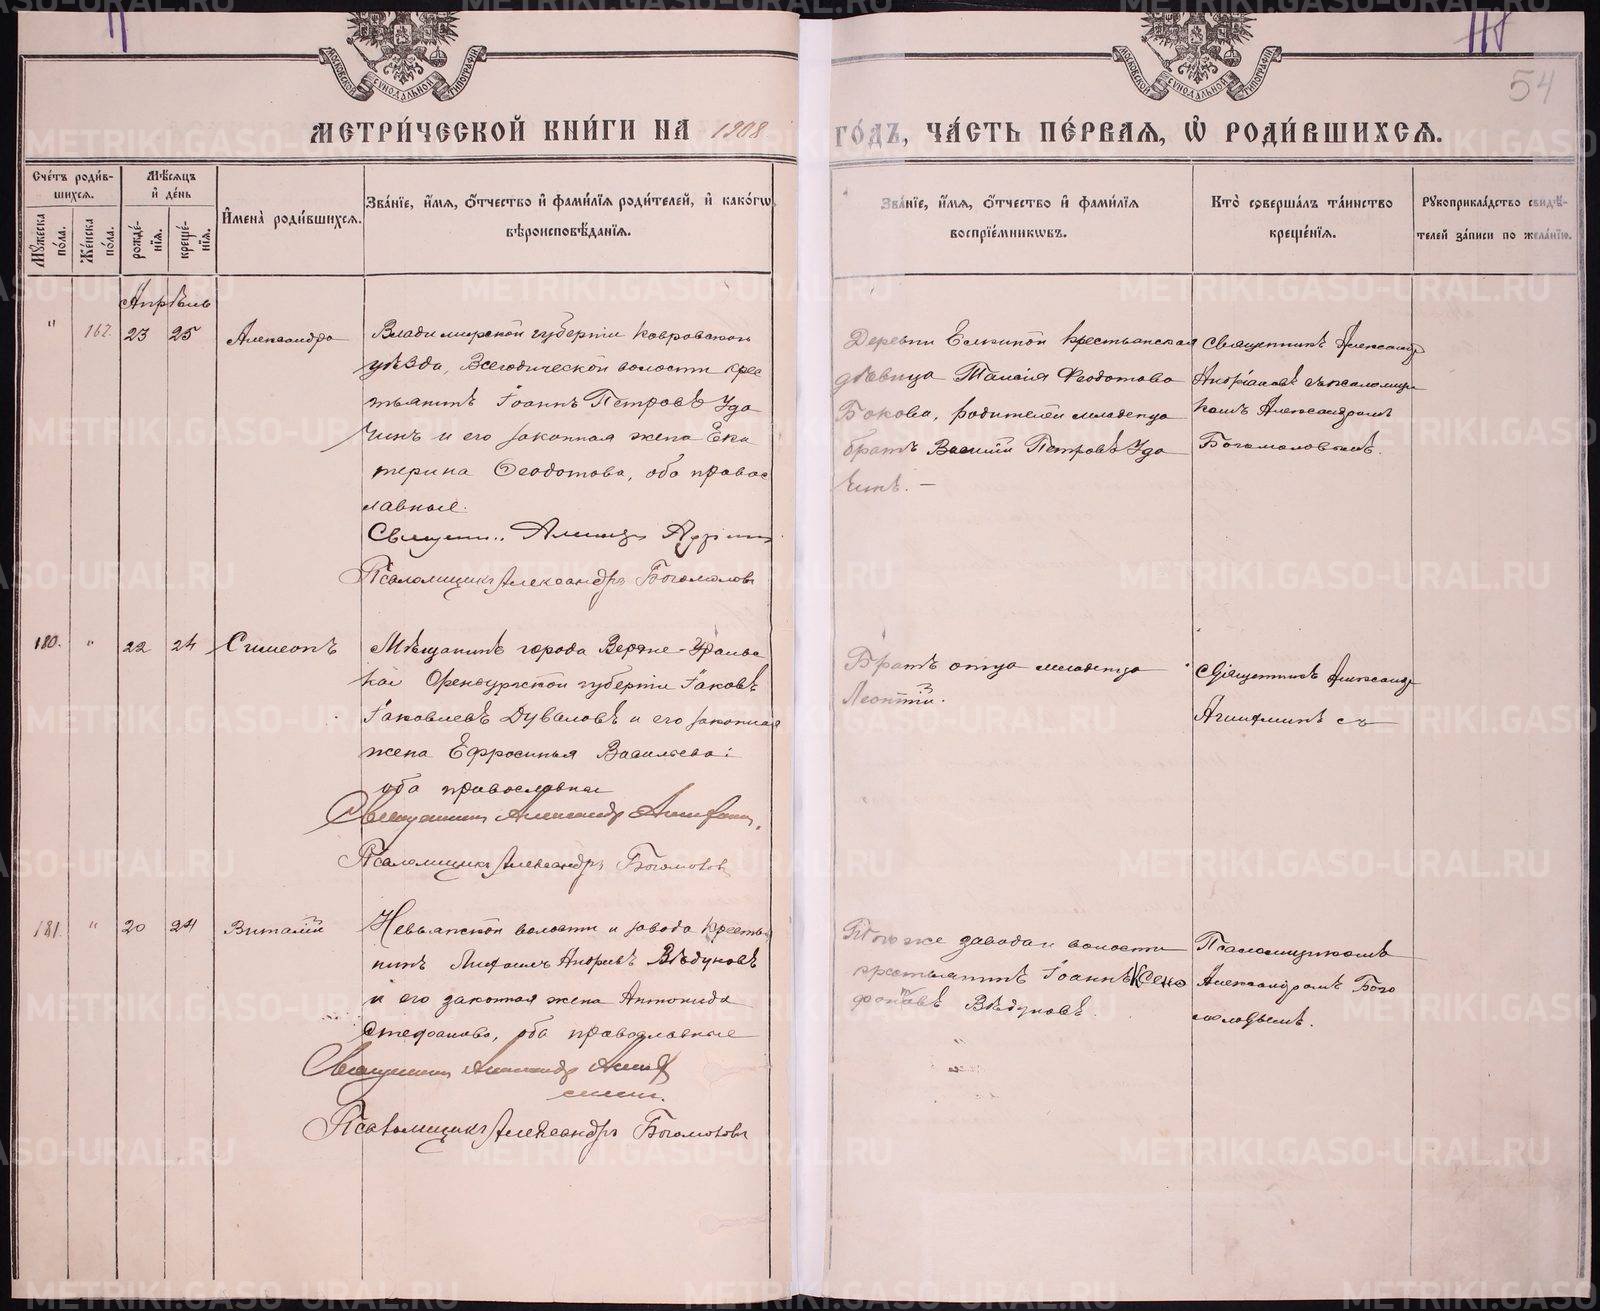 118
54
МОСКОВСКОЙ СѴНОДАЛЬНОЙ ТИПОГРАФІИ
МОСКОВСКОЙ СѴНОДАЛЬНОЙ ТИПОГРАФІИ
МЕТРИ́ЧЕСКОЙ КНИ́ГИ НА 1908 ГО́ДЪ, ЧА́СТЬ ПЕ́РВАЯ, Ѡ҆ РОДИ́ВШИХСЯ.
Сче́тъ роди́в-
шихся.
Мꙋ́жеска по́ла.
Же́нска по́ла.
Мѣ́сяцъ
и҆ де́нь
рожде́-
нїя.
креще́-
нїя.
И҆мена̀ роди́вшихся.
Зва́нїе, и҆́мя, ѻ҆́тчество и҆ фами́лїя роди́телей, и҆ како́гѡ
вѣроисповѣ́данїя.
Зва́нїе, и҆́мя, ѻ҆́тчество и҆ фами́лїя
воспрїе́мникѡвъ.
Кто̀ соверша́лъ та́инство
креще́нїя.
Рꙋкоприкла́дство свидѣ́-
телей за́писи по жела́нїю.
Апрѣль
" 167. 23 25 Александра
Владимирской губерніи Ковровскаго
уѣзда, Всегодической волости крес
тьянинъ Іоаннъ Петровъ Уда
чинъ и его законная жена Ека
терина Ѳеодотова, оба правос
лавные.
Псаломщикъ Александръ Богомоловъ
Деревни Елкиной крестьянская
дѣвица Таисія Ѳеодотова
Бокова, родителей младенца
братъ Василій Петровъ Уда
чинъ. —
Священникъ Александр
Андріановъ съ псаломщи
комъ Александромъ
Богомоловымъ.
180. " 22 24 Симеонъ
Мѣщанинъ города Верхне-Уральс
ка Оренбургской губерніи Іаковъ
Іаковлевъ Дуваловъ и его законная
жена Ефросинья Васильева:
оба православные
Священникъ Александр
Псаломщикъ Александръ Богомоловъ
Братъ отца младенца
Леонтій.
Священникъ Александр
съ
181. " 20 24 Виталій
Невьянской волости и завода крестья
нинъ Андреевъ Вѣдуновъ
и его законная жена Антонида
Стефанова, оба православные
Священникъ Александр
Псаломщикъ Александръ Богомоловъ
Того же завода и волости
крестьянинъ Іоаннъ Ксено
фонтовъ Вѣдуновъ.
Псаломщикомъ
Александромъ Бого
моловымъ.
METRIKI.GASO-URAL.RU